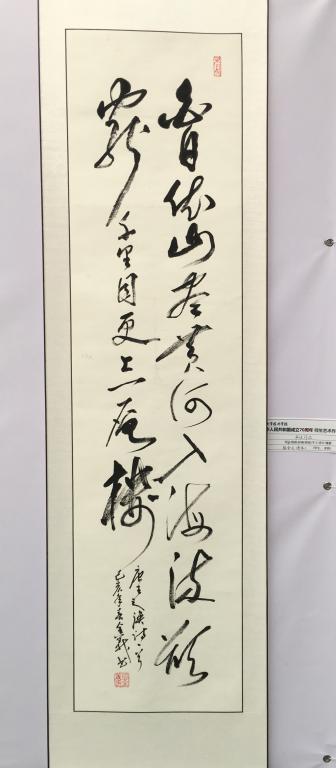 白日依山盡黄河入海流欲
窮千里目更上一層樓
唐王之渙詩一首
己亥年春金書
人民共和国成立70周年